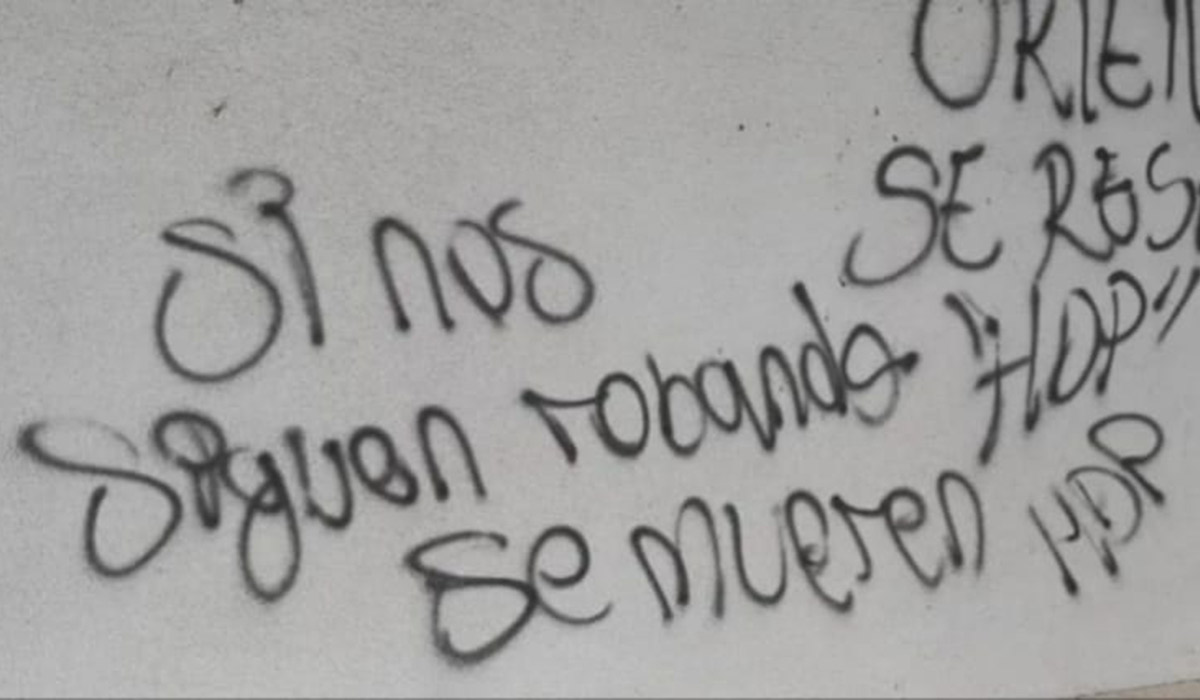 ORIEN
SE RES
Si nos
siguen robando "HDP"
se mueren HDP